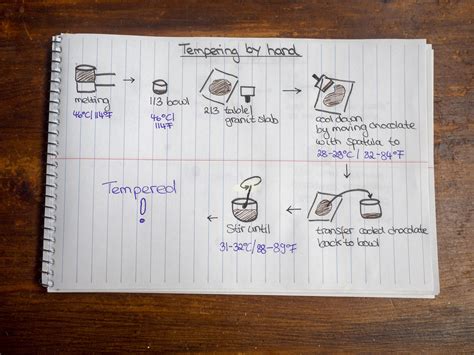 Tempering by hand
melting
46°C/114°F
1/3 bowl
46°C/
114°F
2/3 table/
granit slab
cool down
by moving chocolate
with spatula to
28-29°C / 82-84°F
transfer cooled chocolate
back to bowl
Stir until
31-32°C/88-89°F
Tempered
!